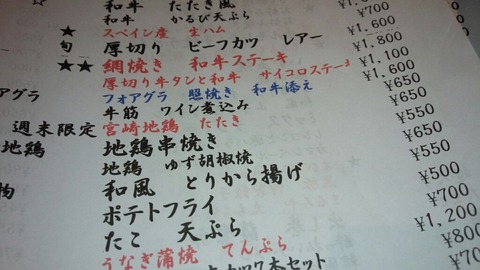 和牛 たたき風
和牛 かるび天ぷら ¥700
★ スペイン産 生ハム ¥1,600
旬 厚切り ビーフカツ レアー ¥1,800
★★ 網焼き 和牛ステーキ ¥1,100
厚切り牛タンと和牛 サイコロステーキ ¥1,600
アグラ フォアグラ 照焼き 和牛添え ¥650
牛筋 ワイン煮込み ¥650
週末限定 宮崎地鶏 たたき ¥550
地鶏 地鶏串焼き ¥650
地鶏 ゆず胡椒焼 ¥550
物 和風 とりから揚げ ¥500
ポテトフライ ¥700
たこ 天ぷら ¥1,200
うなぎ蒲焼 てんぷら ¥800
カツ7本セット ¥700